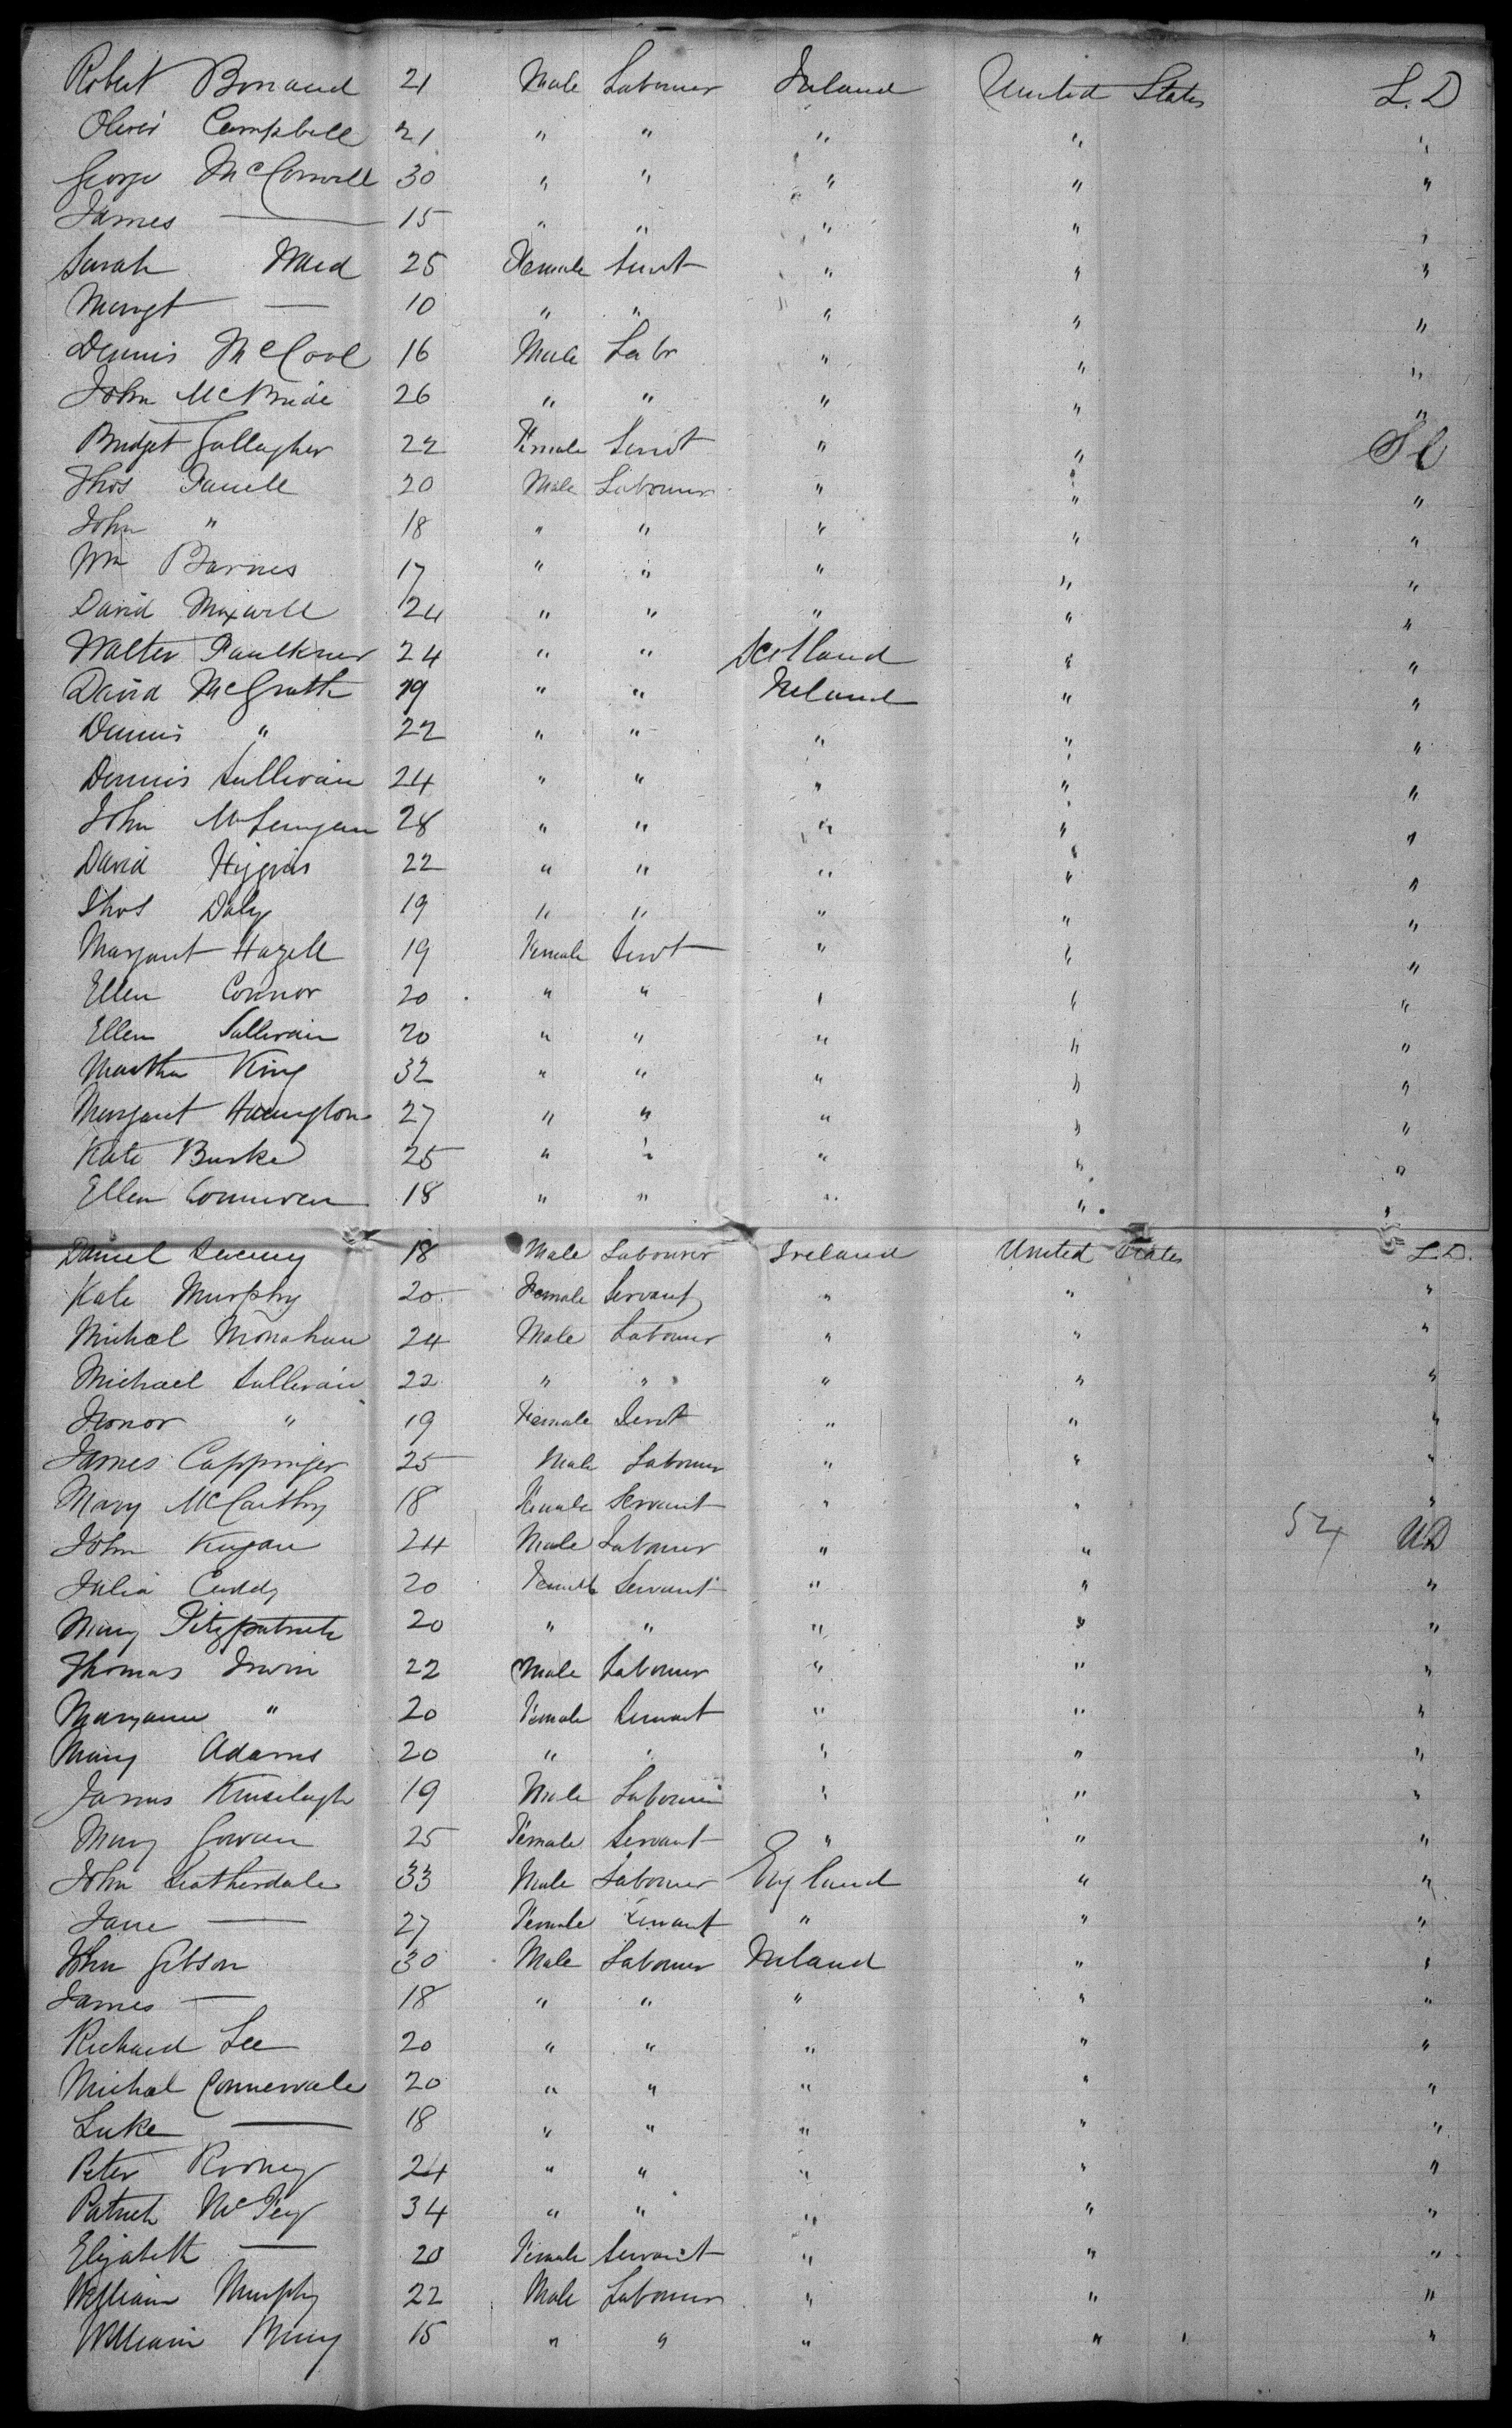 Robert 21 Male Labourer Ireland United States L.D
Oliver Campbell 21 " " " " "
George McConnell 30 " " " " "
James — 15 " " " " "
Sarah Ward 25 Female Servt " " "
Margt — 10 " " " " "
Dennis McCool 16 Male Labr " " "
John McBride 26 " " " " "
Bridget Gallagher 22 Female Servt " "
Thos Farrell 20 Male Labourer " " "
John " 18 " " " " "
Wm Barnes 17 " " " " "
David Maxwell 24 " " " " "
Walter Faulkner 24 " " Scotland " "
David McGrath 19 " " Ireland " "
Dennis " 22 " " " " "
Dennis Sullivan 24 " " " " "
John 28 " " " " "
David Higgins 22 " " " " "
Thos Daly 19 " " " " "
Margaret Hazell 19 Female Servt " " "
Ellen Connor 20 " " " " "
Ellen Sullivan 20 " " " " "
Martha King 32 " " " " "
Margaret Harrington 27 " " " " "
Kate Burke 25 " " " " "
Ellen 18 " " " " "
Daniel 18 Male Labourer Ireland United States L.D.
Kate Murphy 20 Female Servant " " "
Michael Monahan 24 Male Labourer " " "
Michael Sullivan 22 " " " " "
Honor " 19 Female Servt " " "
James Coppinger 25 Male Labourer " " "
Mary McCarthy 18 Female Servant " " "
John 24 Male Labourer " " 54 UD
Julia Cuddy 20 Female Servant " " "
Mary Fitzpatrick 20 " " " " "
Thomas Irwin 22 Male Labourer " " "
Maryanne " 20 Female Servant " " "
Mary Adams 20 " " " " "
James Kinselagh 19 Male Labourer " " "
Mary Gowan 25 Female Servant " " "
John Leatherdale 33 Male Labourer England " "
Jane — 27 Female Servant " " "
John Gibson 30 Male Labourer Ireland " "
James — 18 " " " " "
Richard Lee 20 " " " " "
Michael 20 " " " " "
Luke — 18 " " " " "
Peter Rooney 24 " " " " "
Patrick McFey 34 " " " " "
Elizabeth — 20 Female Servant " " "
William Murphy 22 Male Labourer " " "
William 15 " " " " "